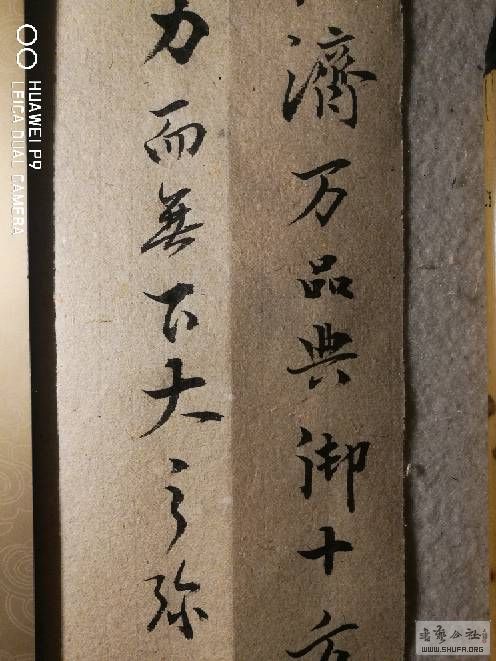 濟万品典御十方
力而無下大之弥
HUAWEI P9
LEICA DUAL CAMERA
書藝公社
WWW.SHUFA.ORG